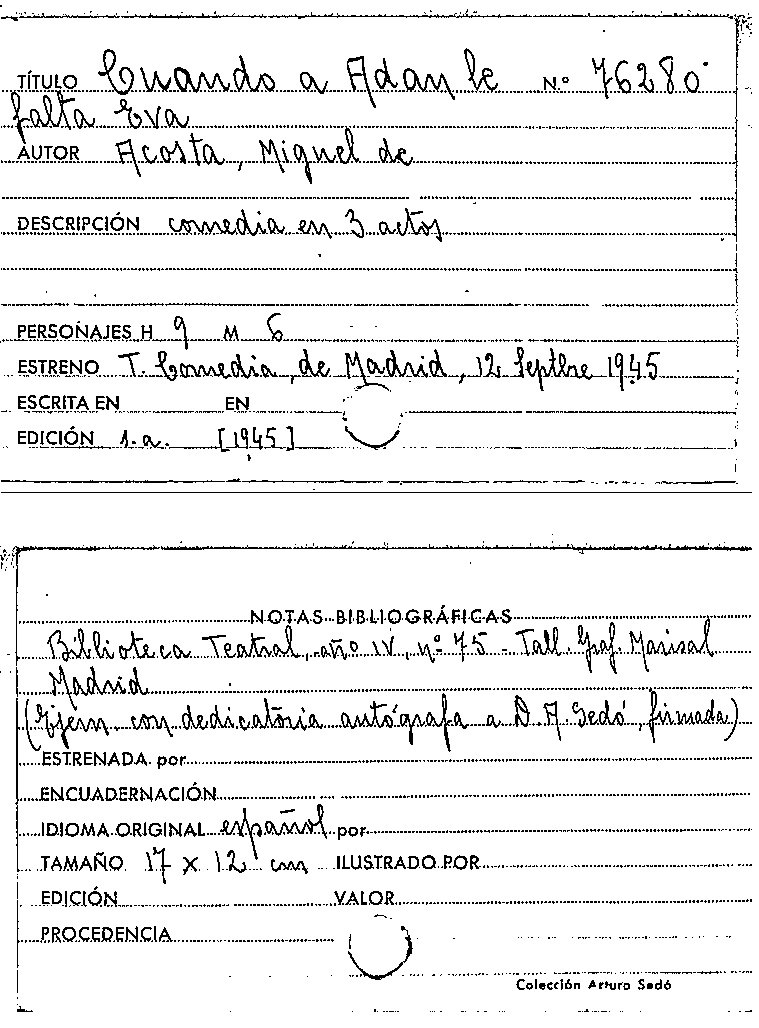 TÍTULO Cuando a Adan le Nº 76280
falta Eva
AUTOR Acosta, Miguel de
DESCRIPCIÓN comedia en 3 actos
PERSONAJES H 9 M 6
ESTRENO T. Comedia, de Madrid, 12 Septbre 1945
ESCRITA EN EN
EDICIÓN 1.a. [1945]
NOTAS BIBLIOGRÁFICAS
Biblioteca Teatral, año IV, nº 75 - Tall. Graf. Marisal
Madrid
(Ejem. con dedicatoria autógrafa a D. A. Sedó, firmada)
ESTRENADA por
ENCUADERNACIÓN
IDIOMA ORIGINAL español por
TAMAÑO 17 x 12 cm ILUSTRADO POR
EDICIÓN VALOR
PROCEDENCIA
Colección Arturo Sedó